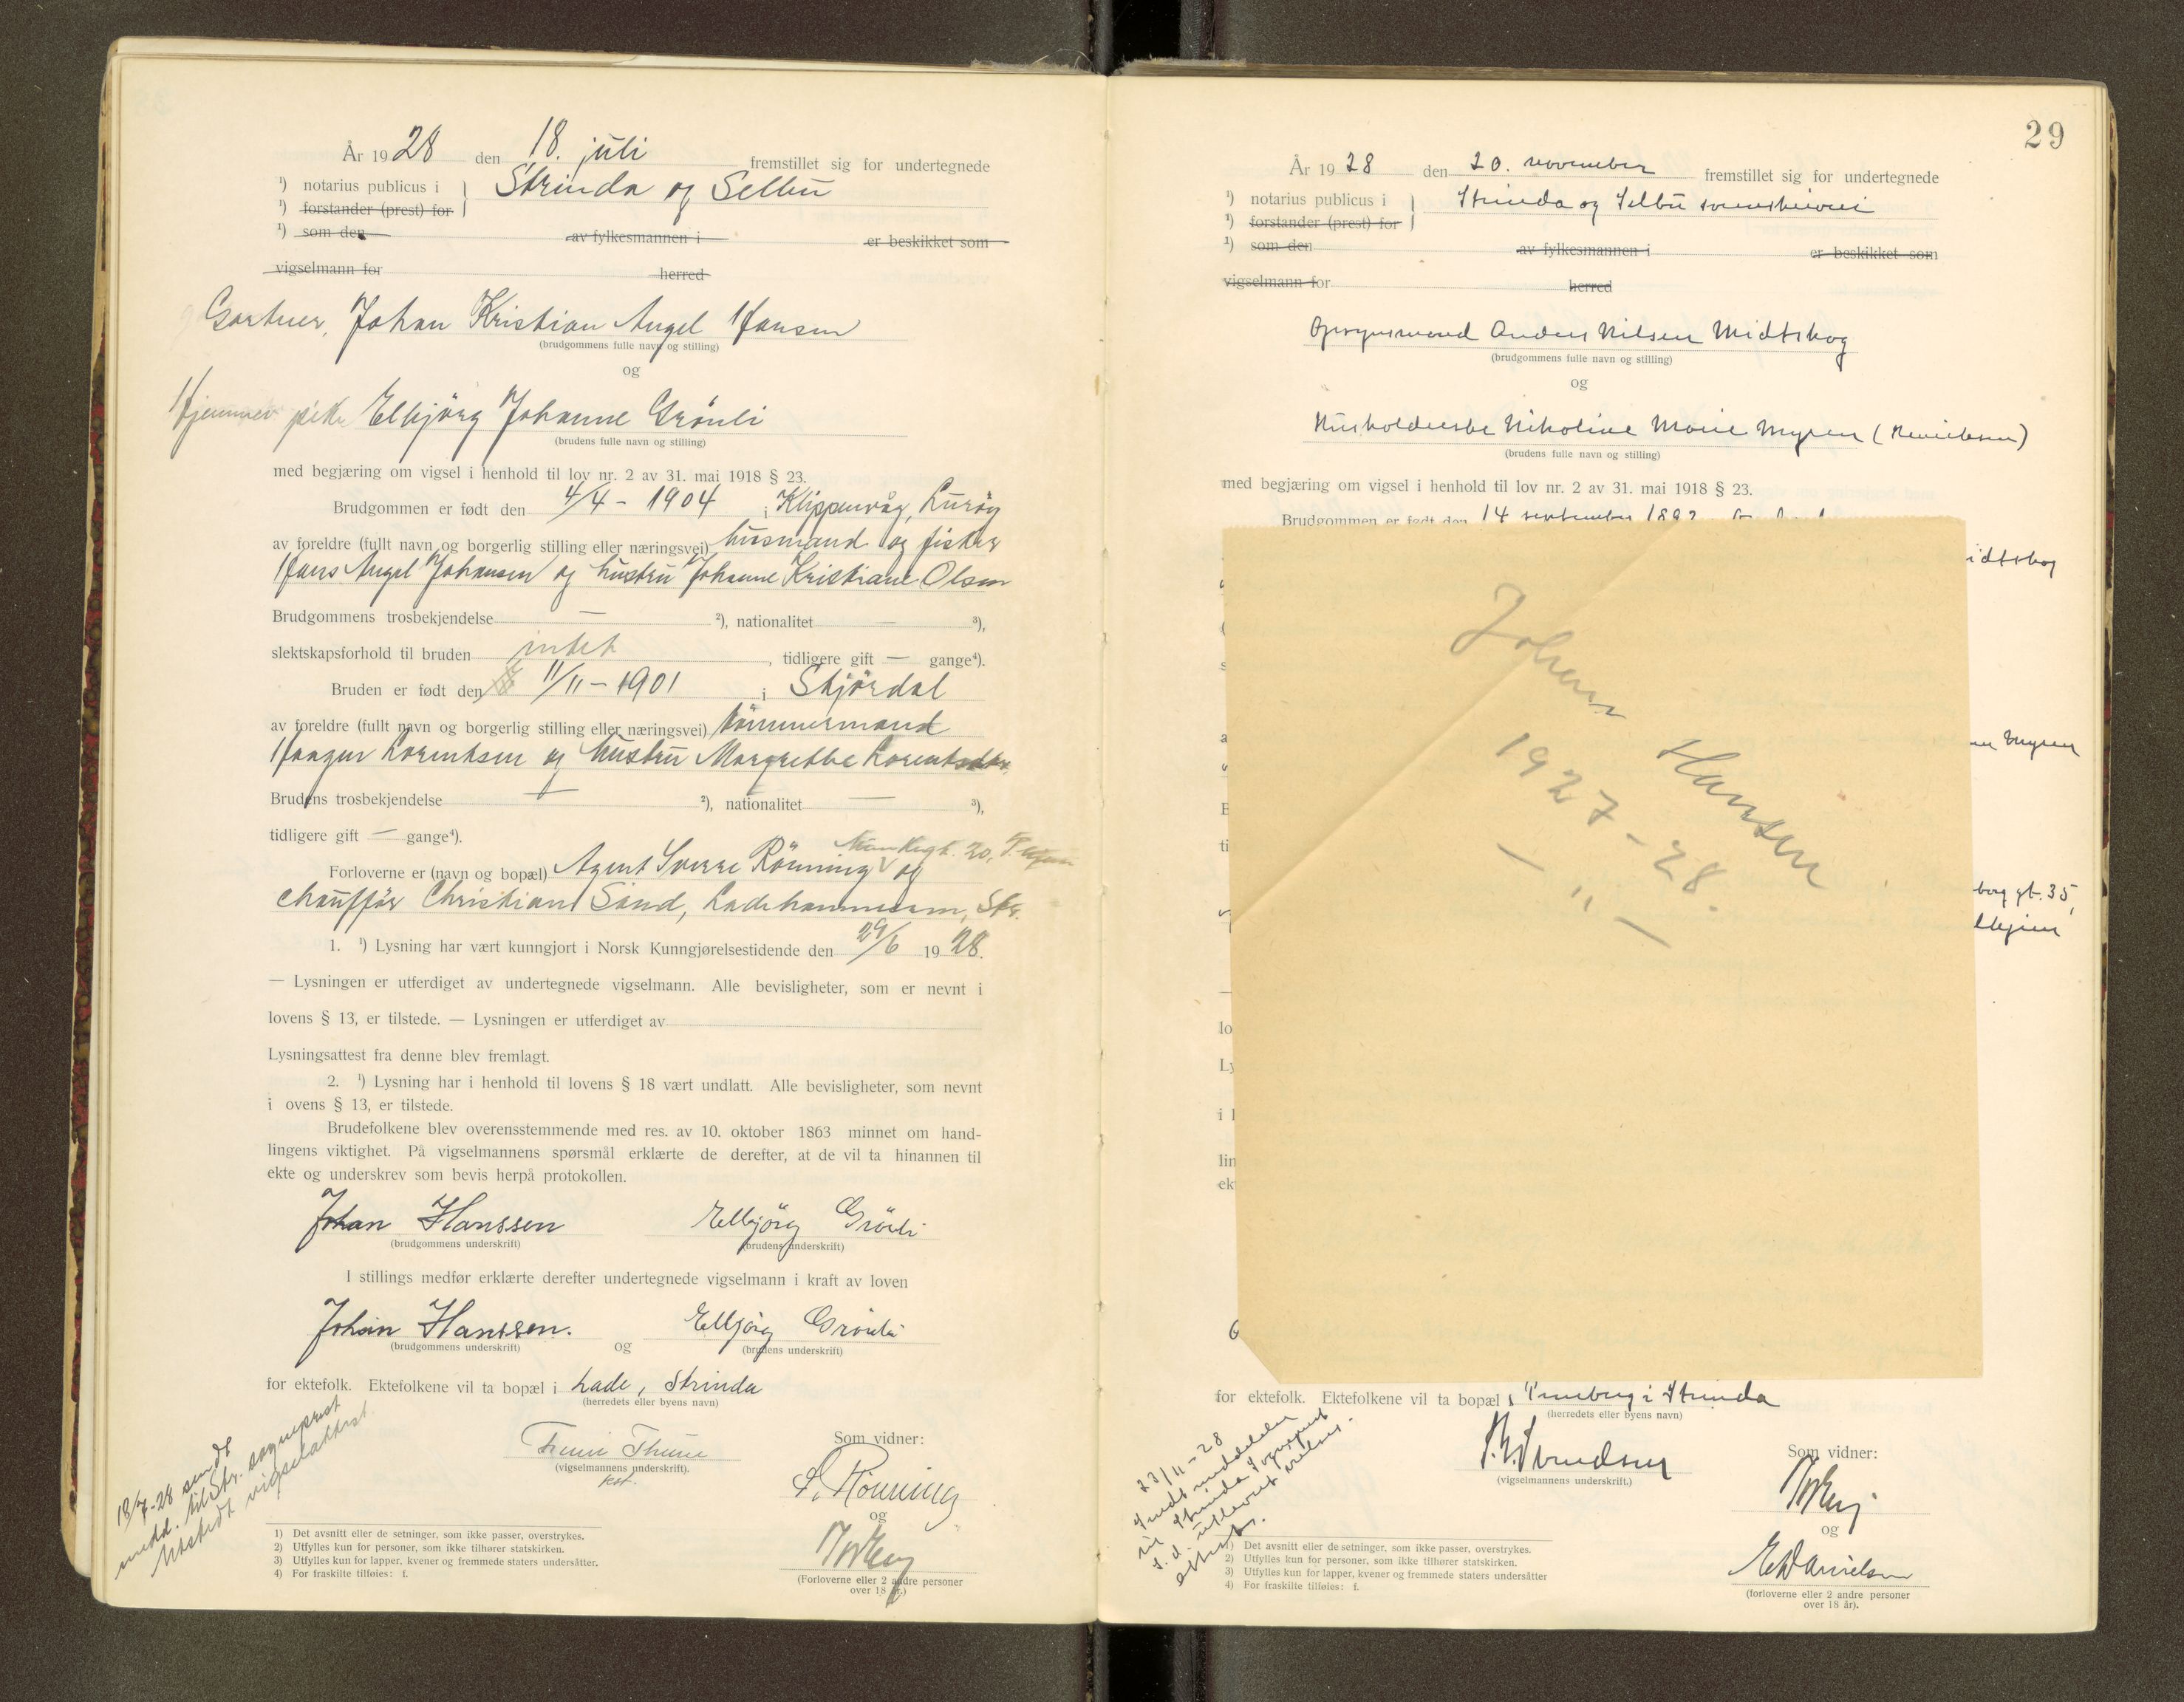 År 1928 den 18. juli fremstillet sig for undertegnede
¹) notarius publicus i } Strinda og Selbu
¹) forstander (prest) for
¹) som den av fylkesmannen i er beskikket som
vigselmann for herred
Gartner, Johan Kristian Angel Hansen
(brudgommens fulle navn og stilling)
og
Hjemmev. pike Elbjörg Johanne Grönli
(brudens fulle navn og stilling)
med begjæring om vigsel i henhold til lov nr. 2 av 31. mai 1918 § 23.
Brudgommen er født den 4/4 - 1904 i Klippenvåg, Luröy
av foreldre (fullt navn og borgerlig stilling eller næringsvei) husmand og fisker
Hans Angel Johansen og hustru Johanne Kristiane Olsen
Brudgommens trosbekjendelse — ²), nationalitet — ³),
slektskapsforhold til bruden intet, tidligere gift — gange⁴).
Bruden er født den 11/11 - 1901 i Stjördal
av foreldre (fullt navn og borgerlig stilling eller næringsvei) tömmermand
Haagen Lorentsen og hustru Margrethe Lorentsdtr.
Brudens trosbekjendelse — ²), nationalitet — ³),
tidligere gift — gange⁴).
Munkegt. 20, T.hjem
Forloverne er (navn og bopæl) Agent Sverre Rönning og
chaufför Christian Sand, Ladehammeren, Str.
1. ¹) Lysning har vært kunngjort i Norsk Kunngjørelsestidende den 29/6 1928.
— Lysningen er utferdiget av undertegnede vigselmann. Alle bevisligheter, som er nevnt i
lovens § 13, er tilstede. — Lysningen er utferdiget av
Lysningsattest fra denne blev fremlagt.
2. ¹) Lysning har i henhold til lovens § 18 vært undlatt. Alle bevisligheter, som nevnt
i ovens § 13, er tilstede.
Brudefolkene blev overensstemmende med res. av 10. oktober 1863 minnet om hand-
lingens viktighet. På vigselmannens spørsmål erklærte de derefter, at de vil ta hinannen til
ekte og underskrev som bevis herpå protokollen.
Johan Hanssen Elbjörg Grönli
(brudgommens underskrift) (brudens underskrift)
I stillings medfør erklærte derefter undertegnede vigselmann i kraft av loven
Johan Hanssen. Elbjörg Grönli
(brudgommens underskrift) og (brudens underskrift)
for ektefolk. Ektefolkene vil ta bopæl i Lade, Strinda
(herredets eller byens navn)
18/7-28 sendt
medd. til Str. sogneprest
Utstedt vigselattest.
Thune
(vigselmannens underskrift).
kst.
Som vidner:
S. Rönning
og
(Forloverne eller 2 andre personer
over 18 år.)
1) Det avsnitt eller de setninger, som ikke passer, overstrykes.
2) Utfylles kun for personer, som ikke tilhører statskirken.
3) Utfylles kun for lapper, kvener og fremmede staters undersåtter.
4) For fraskilte tilføies: f.
29
År 1928 den 20. november fremstillet sig for undertegnede
¹) notarius publicus i } Strinda og Selbu sorenskriveri
¹) forstander (prest) for
¹) som den av fylkesmannen i er beskikket som
vigselmann for herred
Opsynsmand Anders Nilsen Midtskog
(brudgommens fulle navn og stilling)
og
Husholderske Nikoline Marie Myren (Henriksen)
(brudens fulle navn og stilling)
med begjæring om vigsel i henhold til lov nr. 2 av 31. mai 1918 § 23.
Brudgommen er født den 14 september 1892
idtskog
Johan Hansen
1927-28.
— " —
Myren
borg gt. 35,
for ektefolk. Ektefolkene vil ta bopæl i Tuneberg i Strinda
(herredets eller byens navn)
23/11-28
Sendt meddelelse
til Strinda sogneprest
s. d. utlevert vielses-
attest.
(vigselmannens underskrift.)
Som vidner:
og
E. Danielsen
(forloverne eller 2 andre personer
over 18 år).
1) Det avsnitt eller de setninger, som ikke passer, overstrykes.
2) Utfylles kun for personer, som ikke tilhører statskirken.
3) Utfylles kun for lapper, kvener og fremmede staters undersåtter
4) For fraskilte tilføies: f.